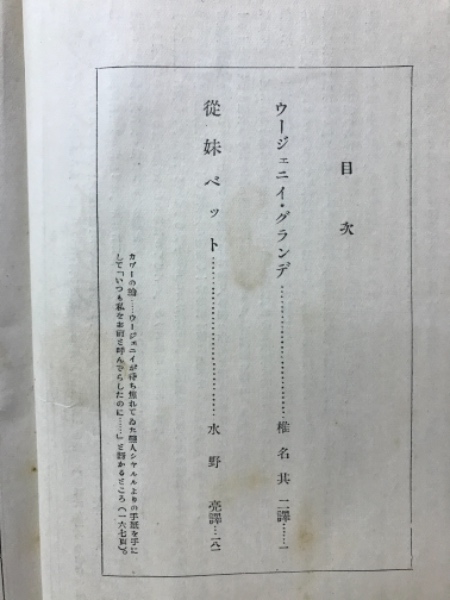 目次
ウージェニイ・グランデ……………………椎名其二譯……一
從妹ベット……………………水野亮譯…一八一
カヴァーの繪……ウージェニイが待ち焦れてゐた戀人シヤルルよりの手紙を手に
して「いつも私をお前と呼んでらしたのに……」と語かるところ(一六七頁)。